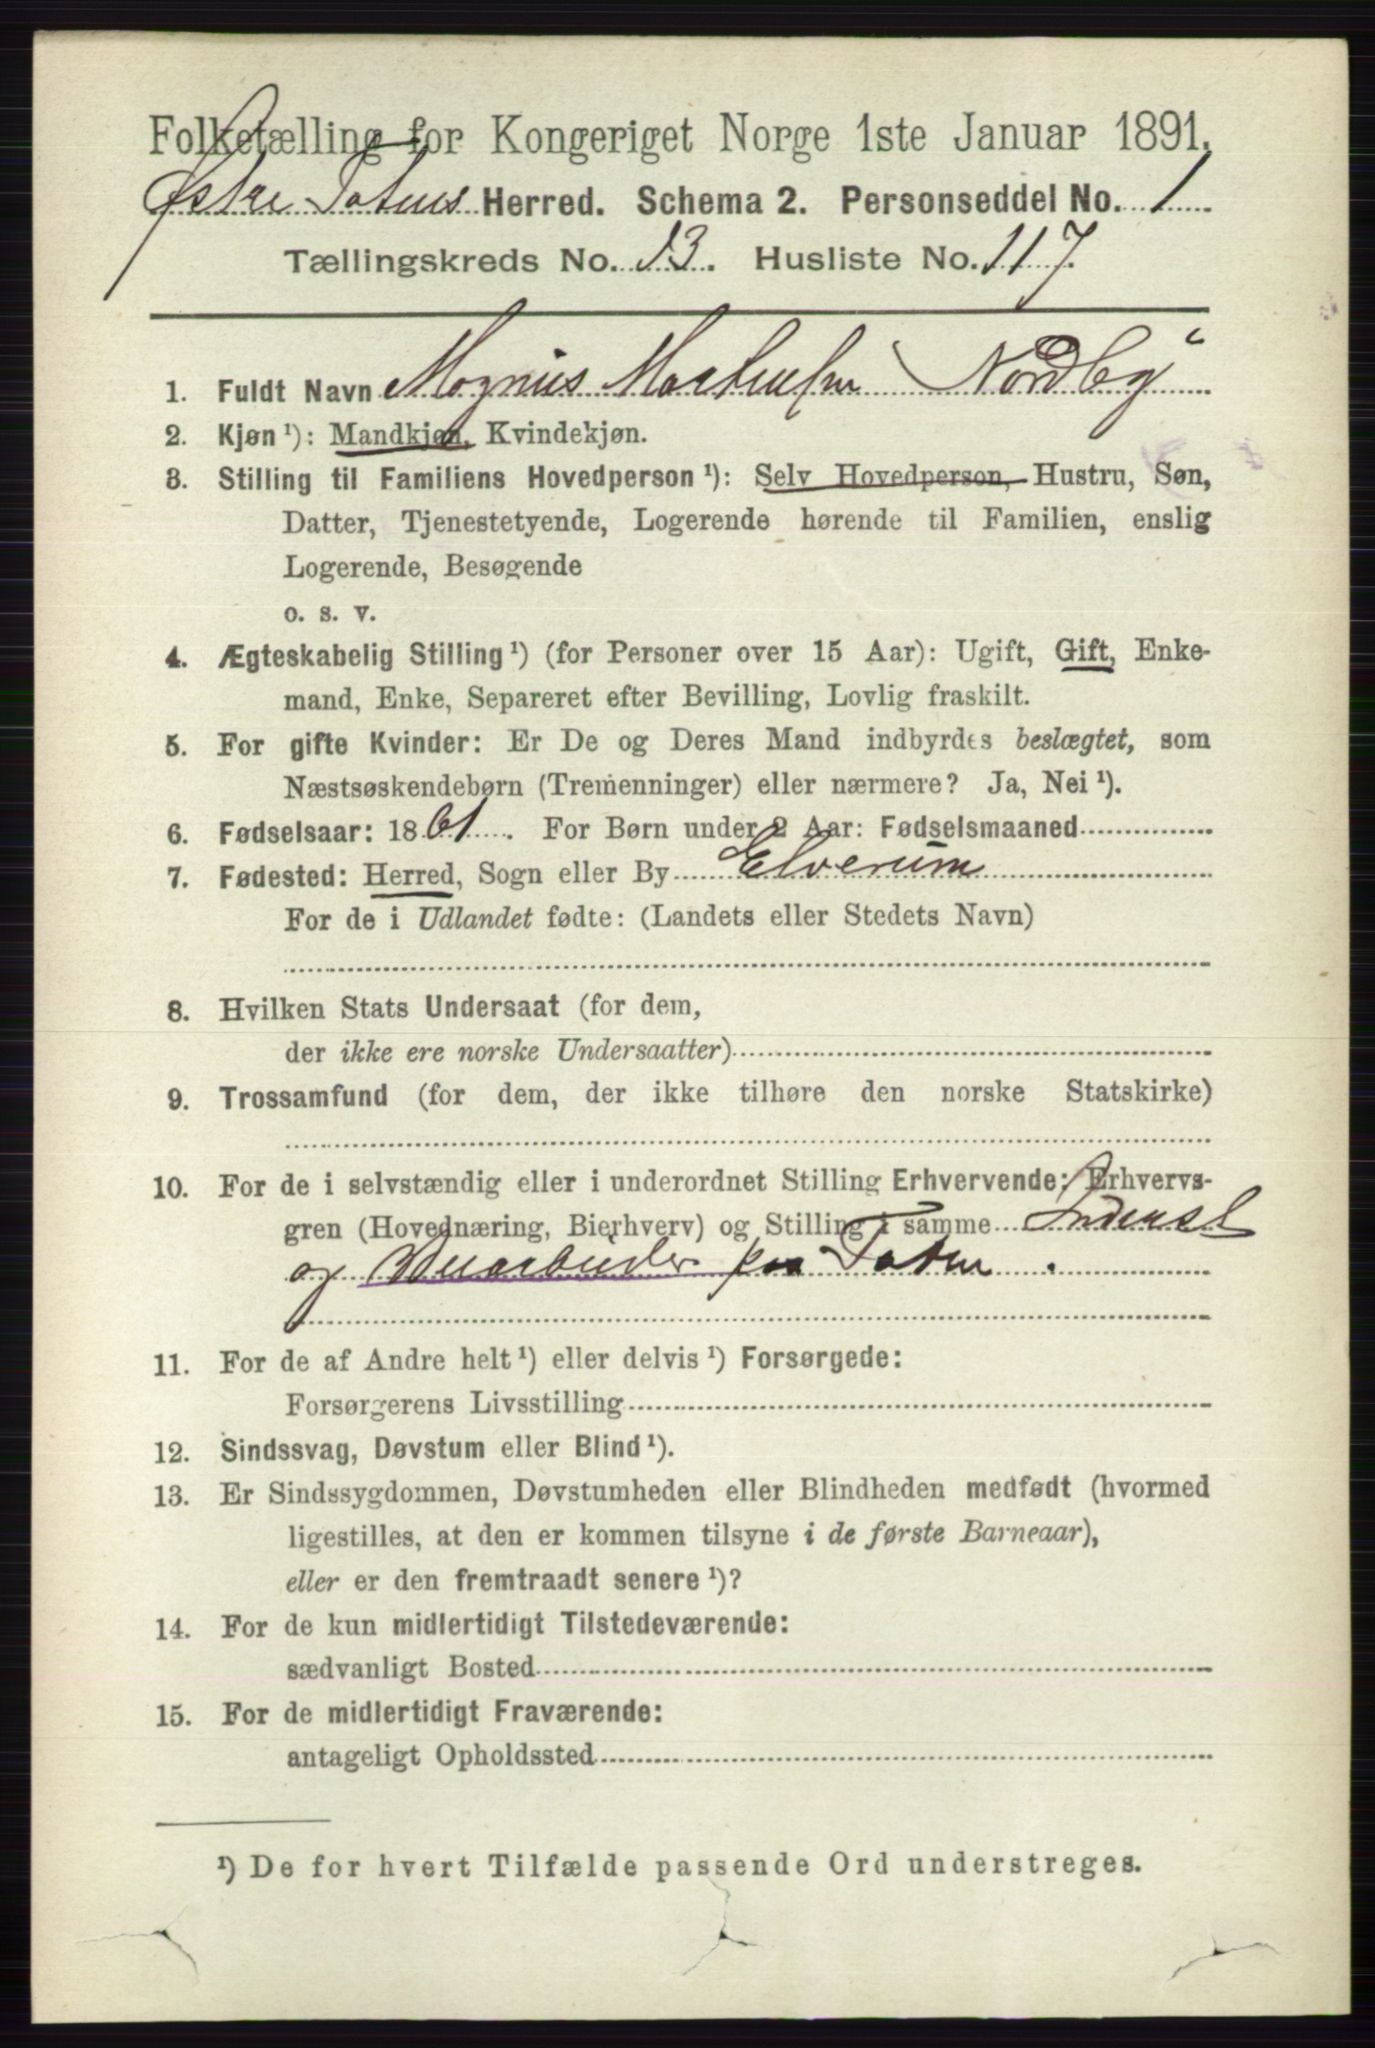 Folketælling for Kongeriget Norge 1ste Januar 1891.
Østre Totens Herred. Schema 2. Personseddel No. 1
Tællingskreds No. 13. Husliste No. 117.
1. Fuldt Navn Magnus Nordby
2. Kjøn ¹): Mandkjøn, Kvindekjøn.
3. Stilling til Familiens Hovedperson ¹): Selv Hovedperson, Hustru, Søn,
Datter, Tjenestetyende, Logerende hørende til Familien, enslig
Logerende, Besøgende
o. s. v.
4. Ægteskabelig Stilling ¹) (for Personer over 15 Aar): Ugift, Gift, Enke-
mand, Enke, Separeret efter Bevilling, Lovlig fraskilt.
5. For gifte Kvinder: Er De og Deres Mand indbyrdes beslægtet, som
Næstsøskendebørn (Tremenninger) eller nærmere? Ja, Nei ¹).
6. Fødselsaar: 1861. For Børn under 2 Aar: Fødselsmaaned
7. Fødested: Herred, Sogn eller By Elverum
For de i Udlandet fødte: (Landets eller Stedets Navn)
8. Hvilken Stats Undersaat (for dem,
der ikke ere norske Undersaatter)
9. Trossamfund (for dem, der ikke tilhøre den norske Statskirke)
10. For de i selvstændig eller i underordnet Stilling Erhvervende: Erhvervs-
gren (Hovednæring, Bierhverv) og Stilling i samme
og paa Toten.
11. For de af Andre helt ¹) eller delvis ¹) Forsørgede:
Forsørgerens Livsstilling
12. Sindssvag, Døvstum eller Blind ¹).
13. Er Sindssygdommen, Døvstumheden eller Blindheden medfødt (hvormed
ligestilles, at den er kommen tilsyne i de første Barneaar),
eller er den fremtraadt senere ¹)?
14. For de kun midlertidigt Tilstedeværende:
sædvanligt Bosted
15. For de midlertidigt Fraværende:
antageligt Opholdssted
¹) De for hvert Tilfælde passende Ord understreges.